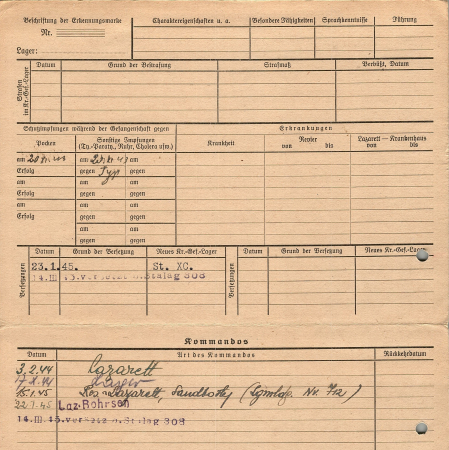 Beschriftung der Erkennungsmarke
Nr.
Lager:
Charaktereigenschaften u. a.
Besondere Fähigkeiten
Sprachkenntnisse
Führung
Strafen im Kr.-Gef.-Lager
Datum
Grund der Bestrafung
Strafmaß
Verbüßt, Datum
Schutzimpfungen während der Gefangenschaft gegen
Pocken
Sonstige Impfungen
(Ty.-Paraty., Ruhr, Cholera usw.)
Erkrankungen
Krankheit
Revier
von bis
Lazarett — Krankenhaus
von bis
am am am
Erfolg gegen Typ gegen
am am am
Erfolg gegen gegen
am am am
Erfolg gegen gegen
am am am
Erfolg gegen gegen
am am
gegen gegen
Versetzungen
Datum
Grund der Versetzung
Neues Kr.-Gef.-Lager
Versetzungen
Datum
Grund der Versetzung
Neues Kr.-Gef.-Lager
23.1.45. St. XC.
14. III. 45. versetzt n. Stalag 308
Kommandos
Datum
Art des Kommandos
Rückkehrdatum
3.2.44 Lazarett
Lager
15.1.45 Lazarett, Sandbostel
Laz. Rohrsen
14. III. 45. versetzt n. Stalag 308